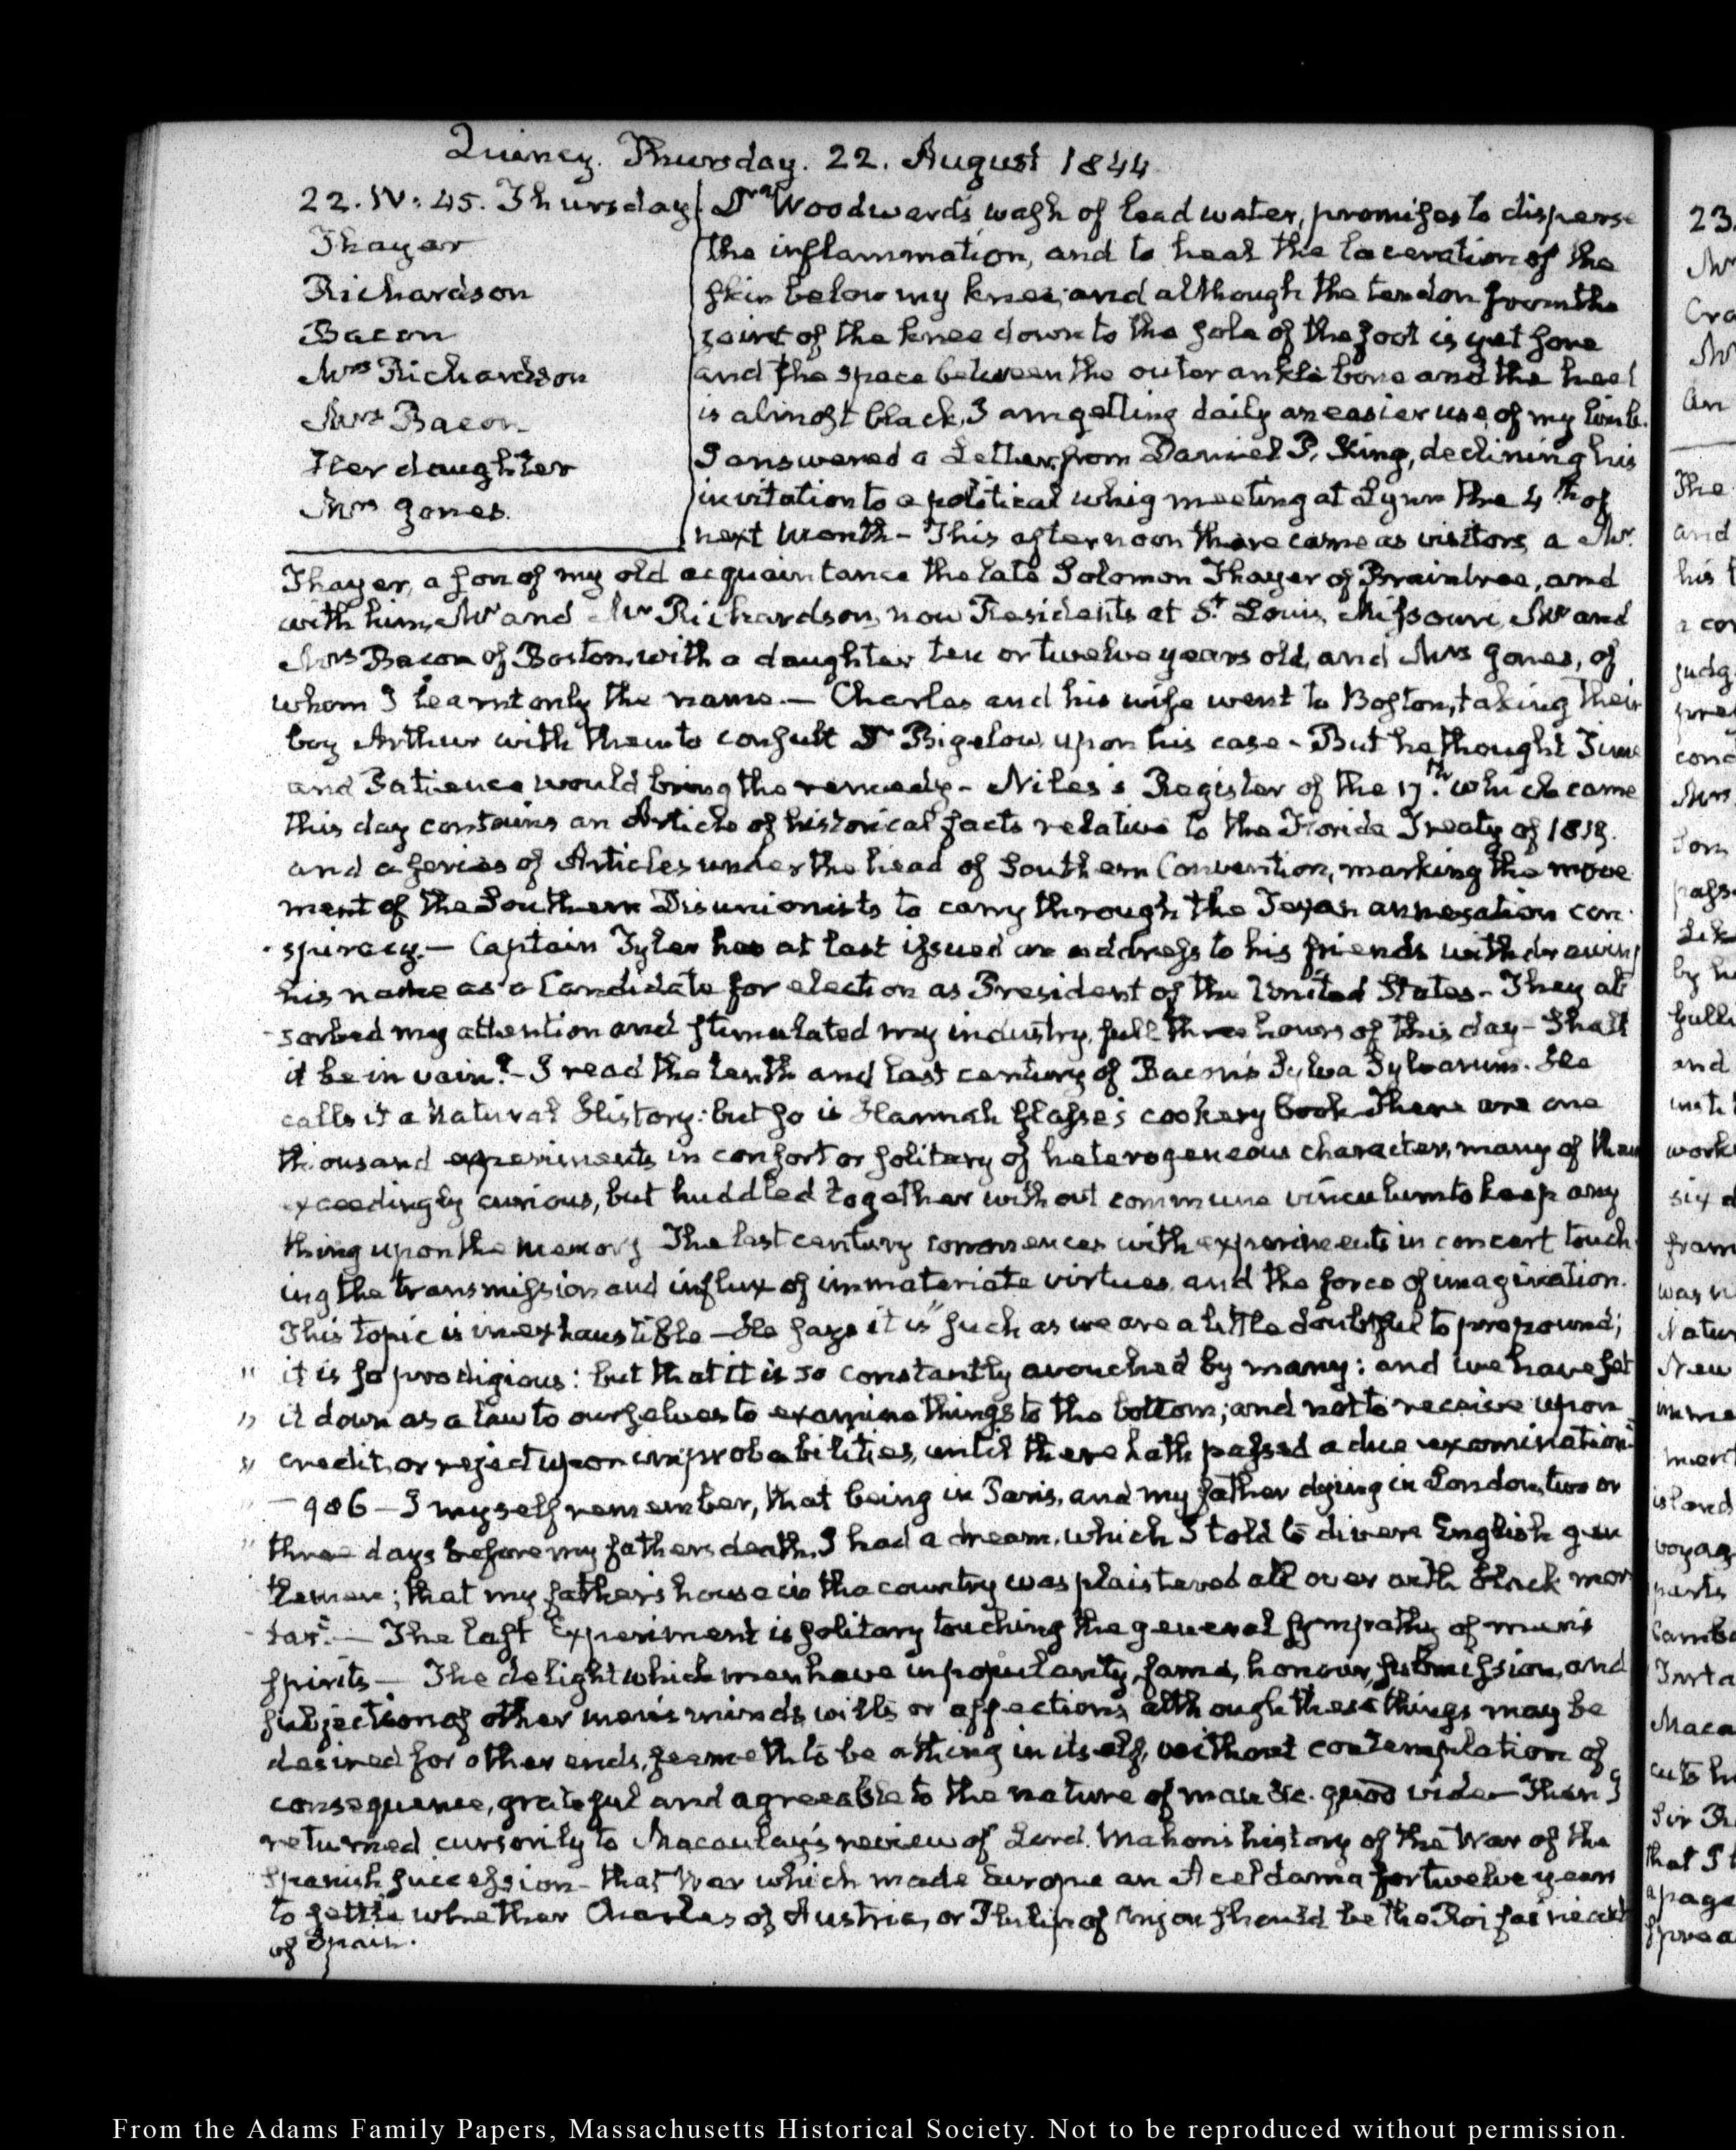 Quincy. Thursday. 22. August 1844
22. IV: 45. Thursday
Thayer
Richardson
Bacon
Mrs Richardson
Mrs Bacon
Her daughter
Mrs Jones.
Dr Woodward's wash of lead water, promises to disperse
the inflammation, and to heal the laceration of the
skin below my knee; and although the tendon from the
joint of the knee down to the sole of the foot is yet sore
and the space between the outer ankle bone and the heel
is almost black, I am getting daily an easier use of my limb.
I answered a Letter from Daniel P. King, declining his
invitation to a political whig meeting at Lynn the 4th of
next Month - This afternoon there came as visitors a Mr.
Thayer, a son of my old acquaintance the late Solomon Thayer of Braintree, and
with him, Mr and Mrs Richardson, now Residents at St. Louis, Missouri, Mr and
Mrs Bacon of Boston, with a daughter ten or twelve years old, and Mrs Jones, of
whom I learnt only the name. — Charles and his wife went to Boston, taking their
boy Arthur with them to consult Dr Bigelow, upon his case - But he thought Time
and Patience would bring the remedy - Niles's Register of the 17th. which came
this day contains an Article of historical facts relative to the Florida Treaty of 1819.
and a series of Articles under the head of Southern Convention, marking the move
ment of the Southern Disunionists to carry through the Texan annexation con-
-spiracy. — Captain Tyler has at last issued an address to his friends withdrawing
his name as a Candidate for election as President of the United States - They ab
-sorbed my attention and stimulated my industry, full three hours of this day - Shall
it be in vain? - I read the tenth and last century of Bacon's Sylva Sylvarum. He
calls it a Natural History: but so is Hannah Glasse's cookery book There are one
thousand experiments in consort or solitary of heterogeneous character, many of them
exceedingly curious, but huddled together without commune vinculum to keep any
thing upon the memory The last century commences with experiments in concert touch-
ing the transmission and influx of immateriate virtues, and the force of imagination.
This topic is inexhaustible — He says it is "such as we are a little doubtful to propound;
" it is so prodigious: but that it is so constantly avouched by many: and we have set
" it down as a law to ourselves to examine things to the bottom; and not to receive upon
" credit, or reject upon improbabilities, until there hath passed a due examination."
" — 986 — I myself remember, that being in Paris, and my father dying in London, two or
" three days before my fathers death, I had a dream, which I told to divers English gen
tlemen; that my father's house in the country was plaistered all over with black mor
-tar." — The last Experiment is solitary touching the general sympathy of men's
spirits — The delight which men have in popularity, fame, honour, submission, and
subjection of other men's minds, wills or affections, although these things may be
desired for other ends, seemeth to be a thing in itself, without contemplation of
consequence, grateful and agreeable to the nature of man &c. quod vide — Then I
returned cursorily to Macaulay's review of Lord Mahon's history of the War of the
Spanish succession - that War which made Europe an Aceldama for twelve years
to settle whether Charles of Austria, or Philip of Anjou should be the Roi faineant
of Spain.
23.
Mr
Cra
Mr
an
The
and
his
a co
judg
pre
conc
Mrs
pass
by h
and
work
six d
fram
was
Natur
New
imme
ment
island
voyag
parts
Camb
Maca
Sir
that I
a page
sprea
From the Adams Family Papers, Massachusetts Historical Society. Not to be reproduced without permission.